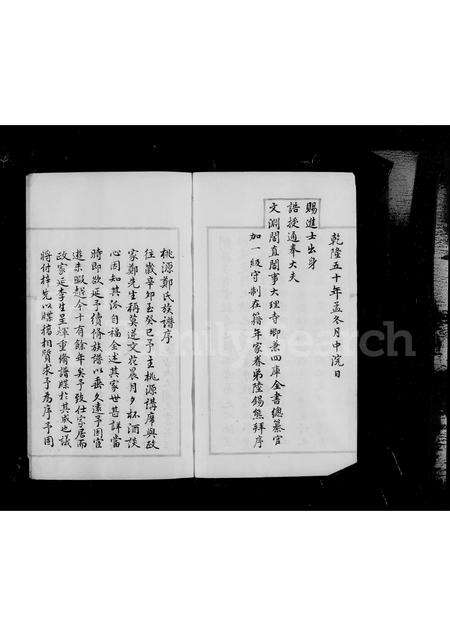 乾隆五十年孟冬月中浣日
賜進士出身
誥授通奉大夫
文淵閣直閣事大理寺卿兼四庫全書總纂官
加一級守制在籍年家眷弟陸錫熊拜序
桃源鄭氏族譜序
往歲辛卯至癸巳予主桃源講席與政
家鄭先生稱莫逆文花晨月夕杯酒談
心因知其派自福金述其家世甚詳當
時即欲延予續脩族譜以垂久遠予因宦
遊未暇越今十有餘年矣予致仕家居而
政家延李生呈輝重脩譜牒於其成也議
將付梓先以牒稿相質求予為序予因